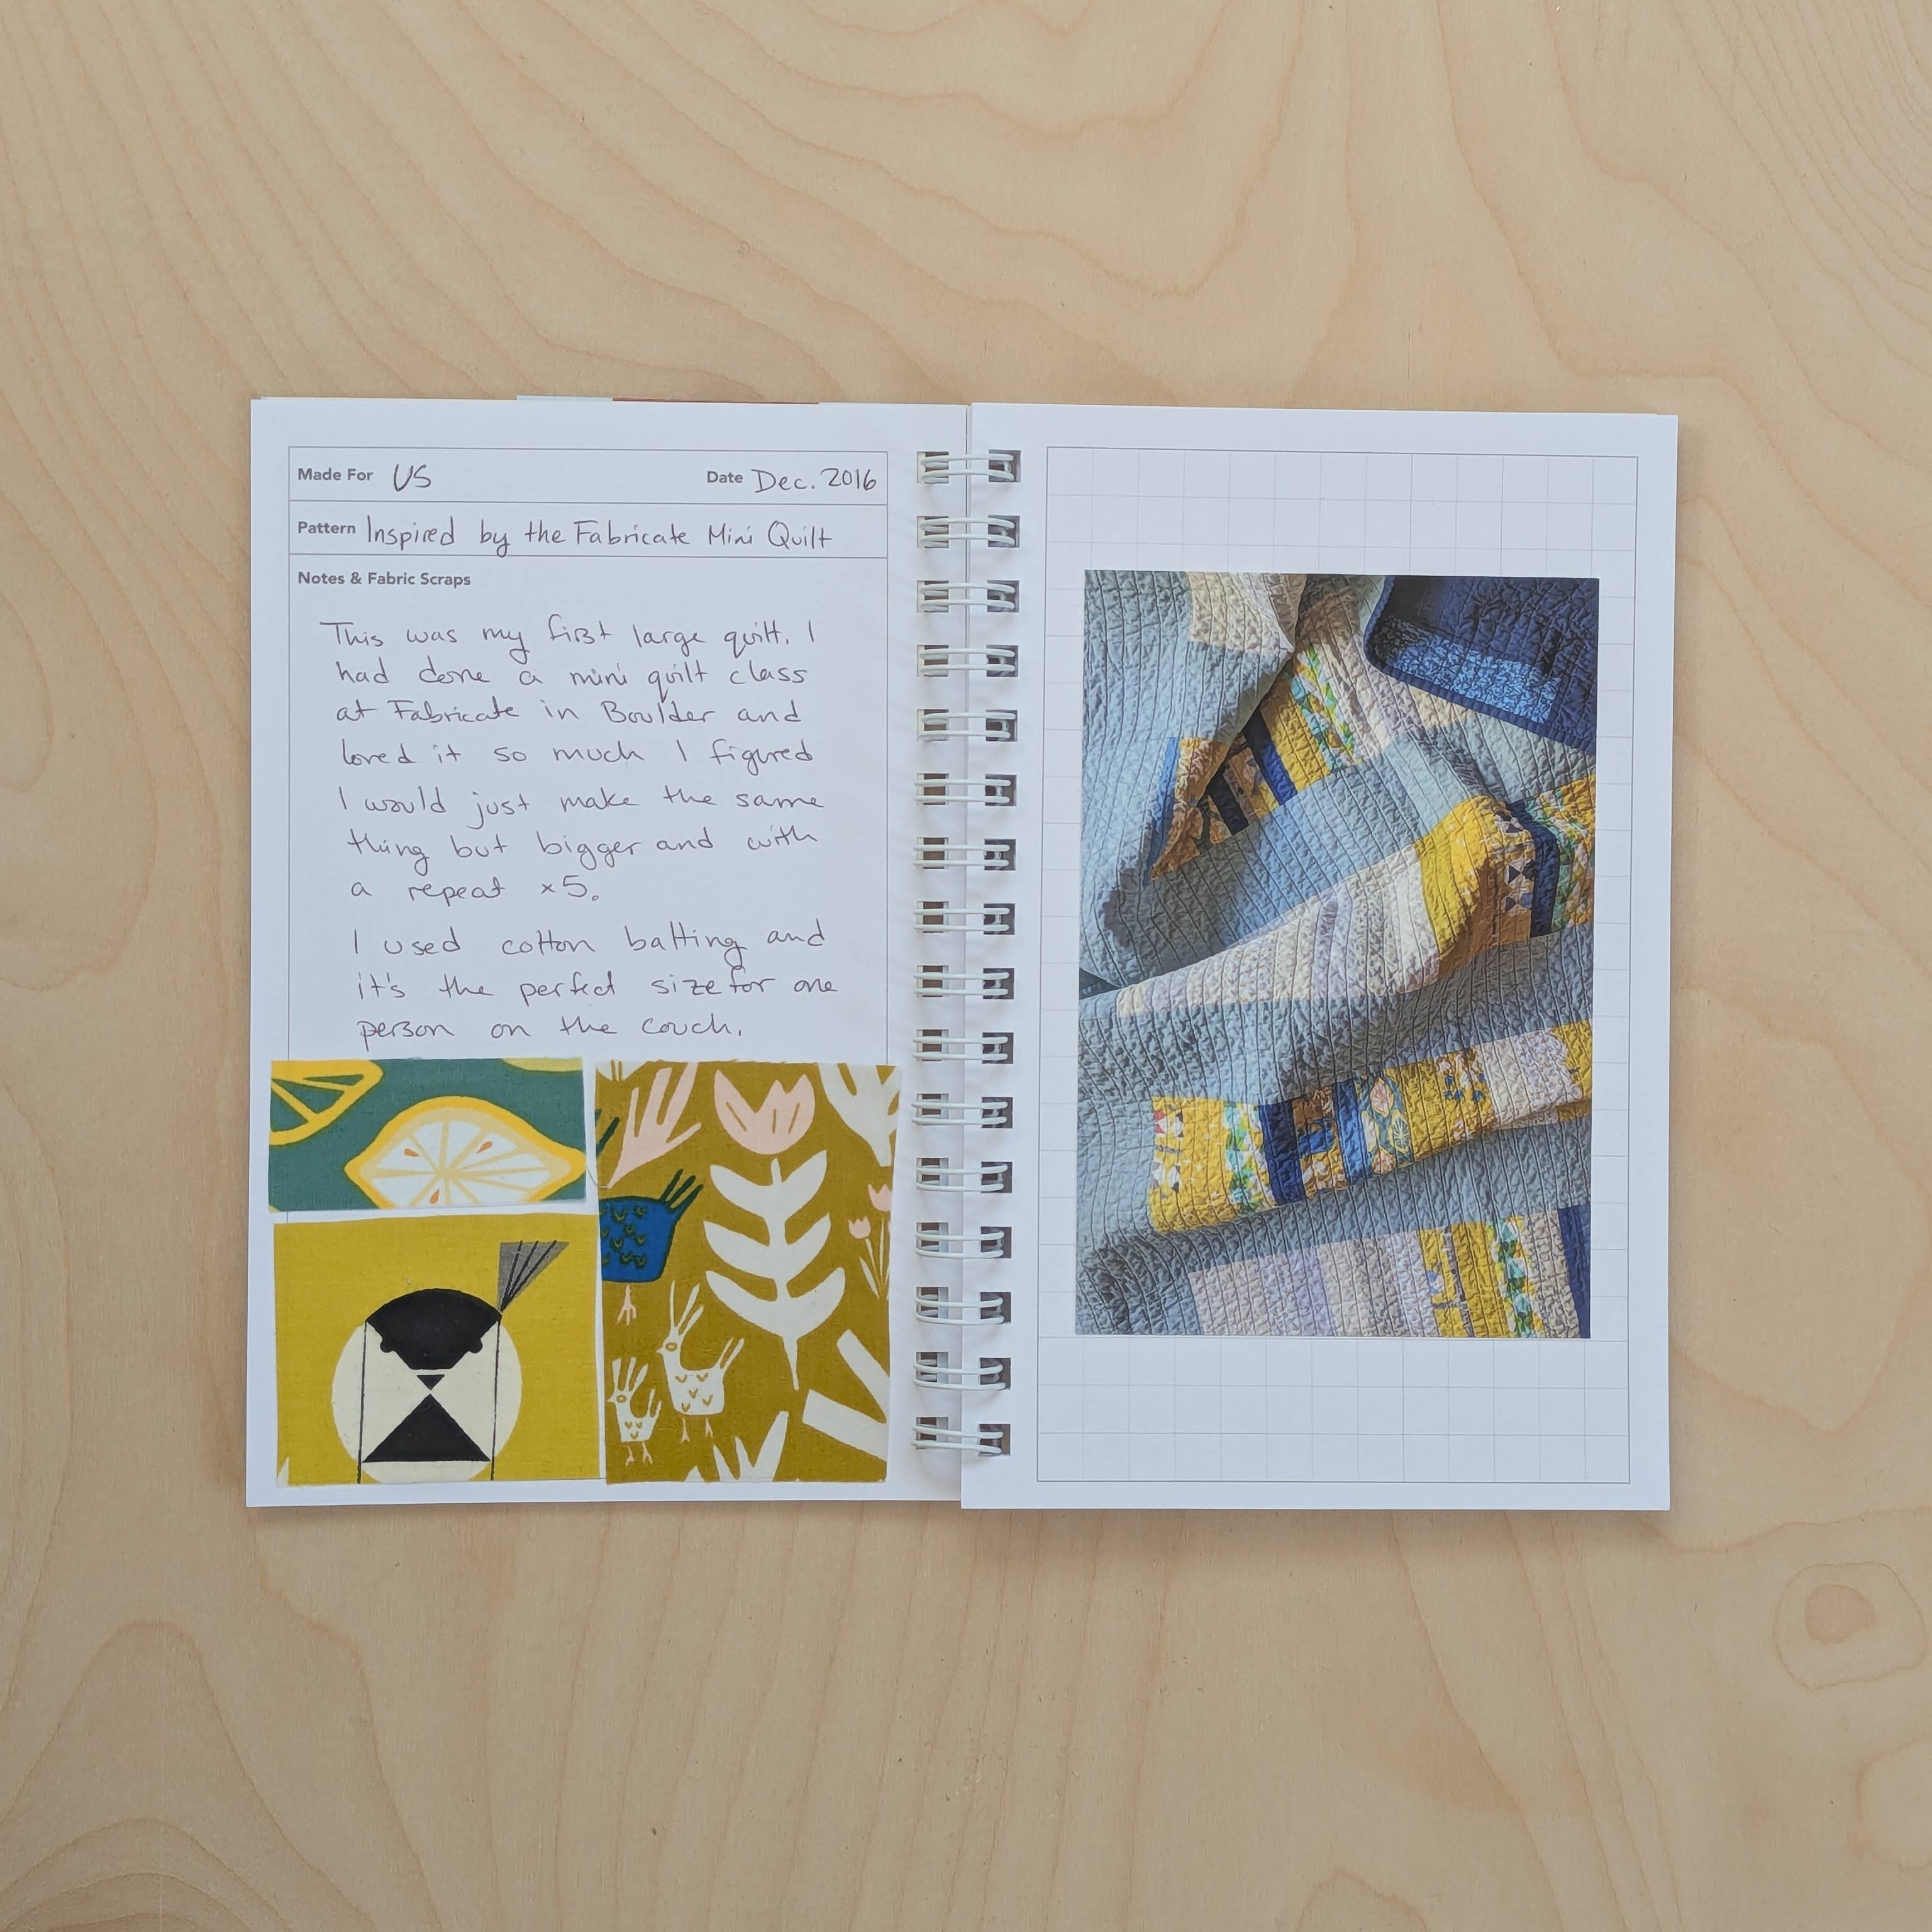 Made For US Date Dec. 2016
Pattern Inspired by the Fabricate Mini Quilt
Notes & Fabric Scraps
This was my first large quilt. I
had done a mini quilt class
at Fabricate in Boulder and
loved it so much I figured
I would just make the same
thing but bigger and with
a repeat x5.
I used cotton batting and
it's the perfect size for one
person on the couch.